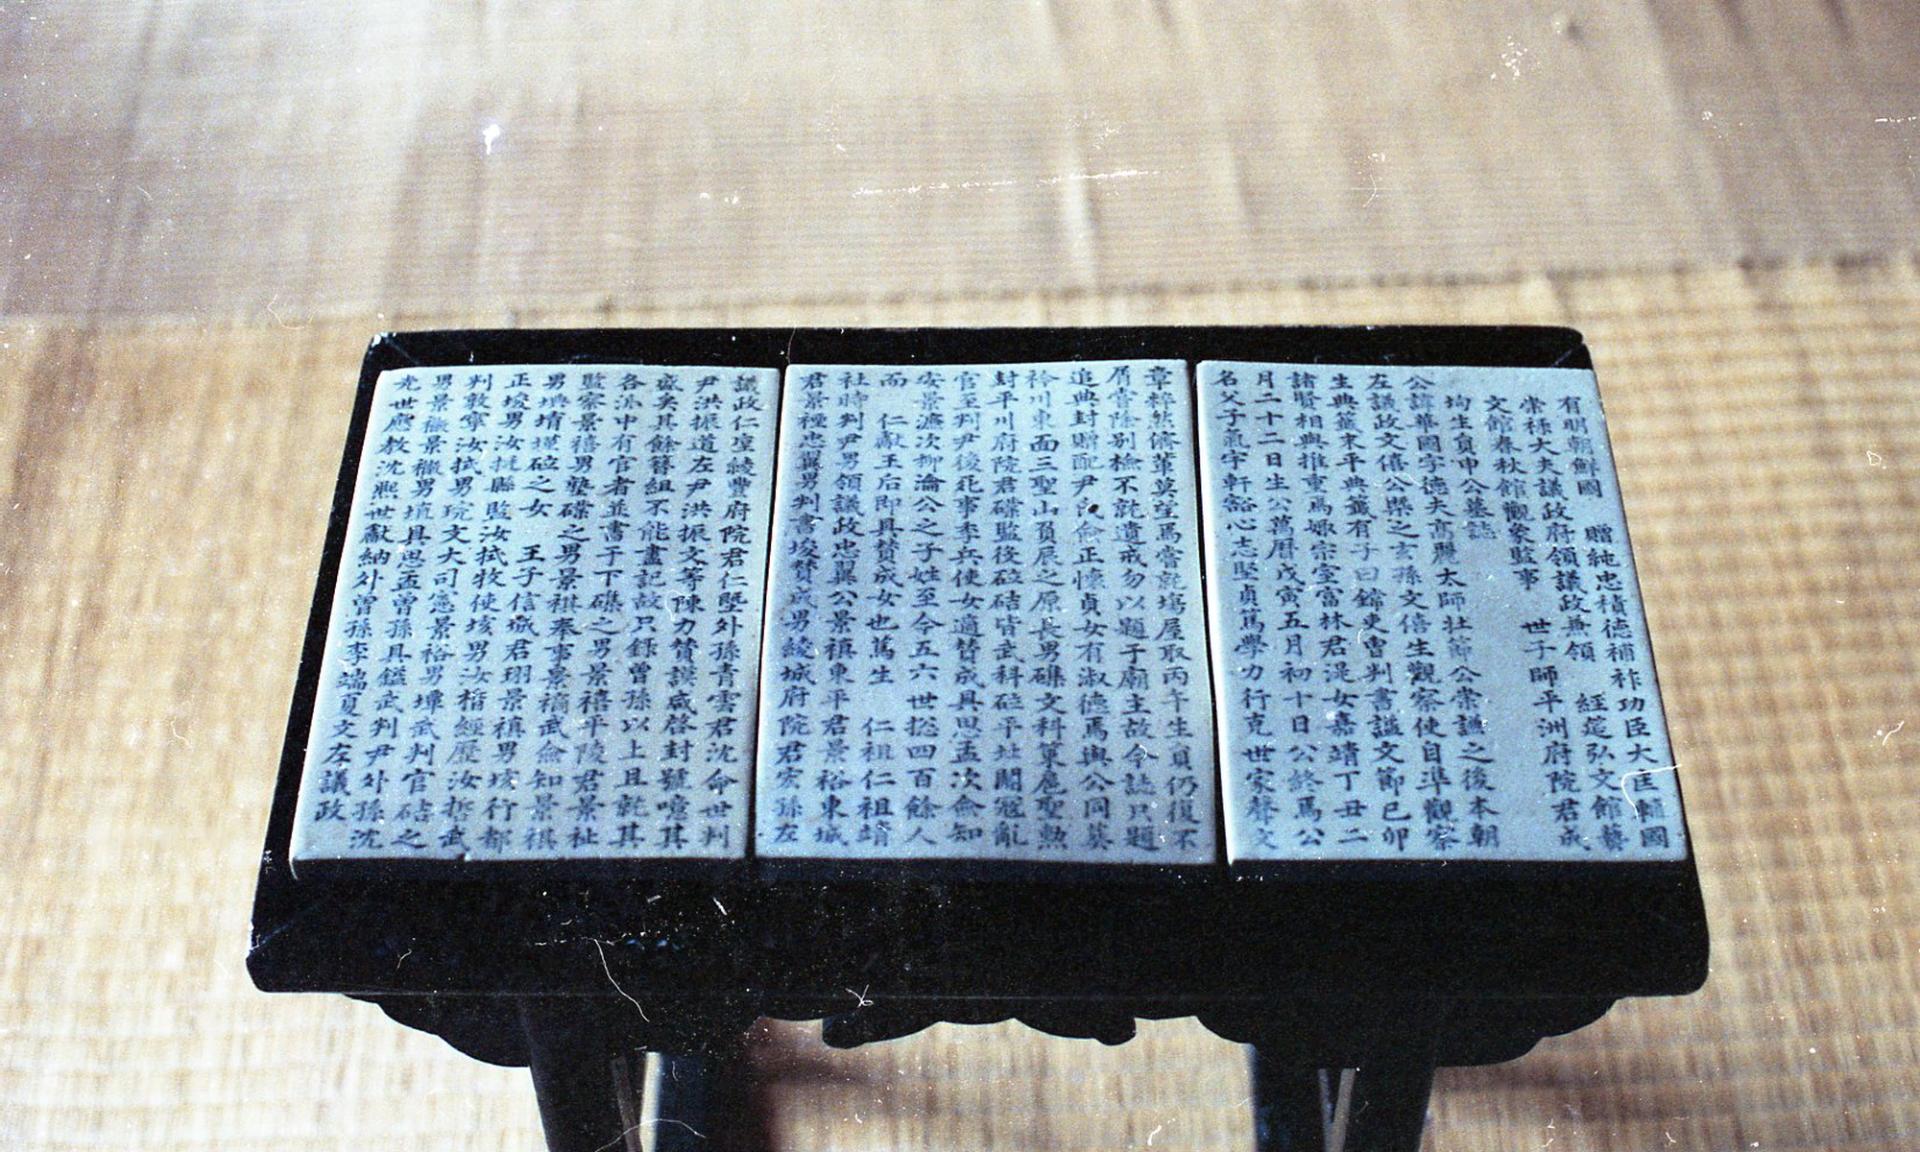 有明朝鮮國 贈純忠積德補祚功臣大匡輔國
崇祿大夫議政府領議政兼領 經筵弘文館藝
文館春秋館觀象監事 世子師平洲府院君成
均生員申公墓誌
公諱華國字德夫高麗太師壯節公崇謙之後本朝
左議政文僖公槩之玄孫文僖生觀察使自準觀察
生典籤末平典籤有子曰鏛吏曹判書諡文節己卯
諸賢相與推重焉娶宗室富林君湜女嘉靖丁丑二
月二十二日生公萬曆戊寅五月初十日公終焉公
名父子氣宇軒豁心志堅貞篤學力行克世家聲文
章粹然儕輩莫望焉嘗就場屋取丙午生員仍復不
屑嘗除別檢不就遺戒勿以題于廟主故今誌只題
追典封贈配尹氏僉正懷貞女有淑德焉與公同葬
衿川東面三聖山負辰之原長男磼文科策扈聖勳
封平川府院君磼監役砬硈皆武科砬平壯閣寇亂
官至判尹後死事季兵使女適贊成具思孟次僉知
安景濂次柳淪公之子姓至今五六世捴四百餘人
而 仁獻王后即具贊成女也篤生 仁祖仁祖靖
社時判尹男領議政忠翼公景禛東平君景裕東城
君景禋忠翼男判書埈贊成男綾城府院君宏孫左
議政仁垕綾豐府院君仁墍外孫青雲君沈命世判
尹洪振道左尹洪振文等陳力贊謨咸啓封號噫其
盛矣其餘簪組不能盡記故只錄曾孫以上且就其
各派中有官者並書于下磼之男景禧平陵君景祉
監察景禧男塾磼之男景祺奉事景禱武僉知景祺
男㙉堉墐砬之女 王子信城君珝景禛男垓行都
正埈男汝挻縣監汝拭牧使垓男汝栢經歷汝哲武
判敦寧汝拭男琓文大司憲景裕男墿武判官硈之
男景徽景㣲男塡具思孟曾孫具鎰武判尹外孫沈
光世應教沈熙世獻納外曾孫李端夏文左議政